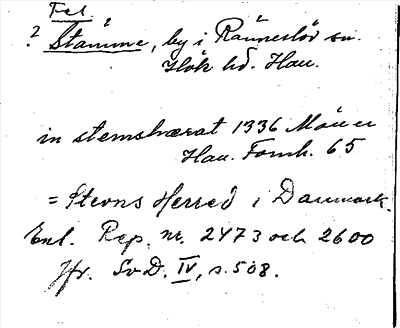 Fel
? Stamme, by i Rännerlöv sn.
Hök hd. Hau.
in stemshærat 1336 Möller
Hau. Fornh. 65
= Stevns Herred i Danmark.
Enl. Rep. nr. 2473 och 2600
Jfr. SvD. IV, s. 508.